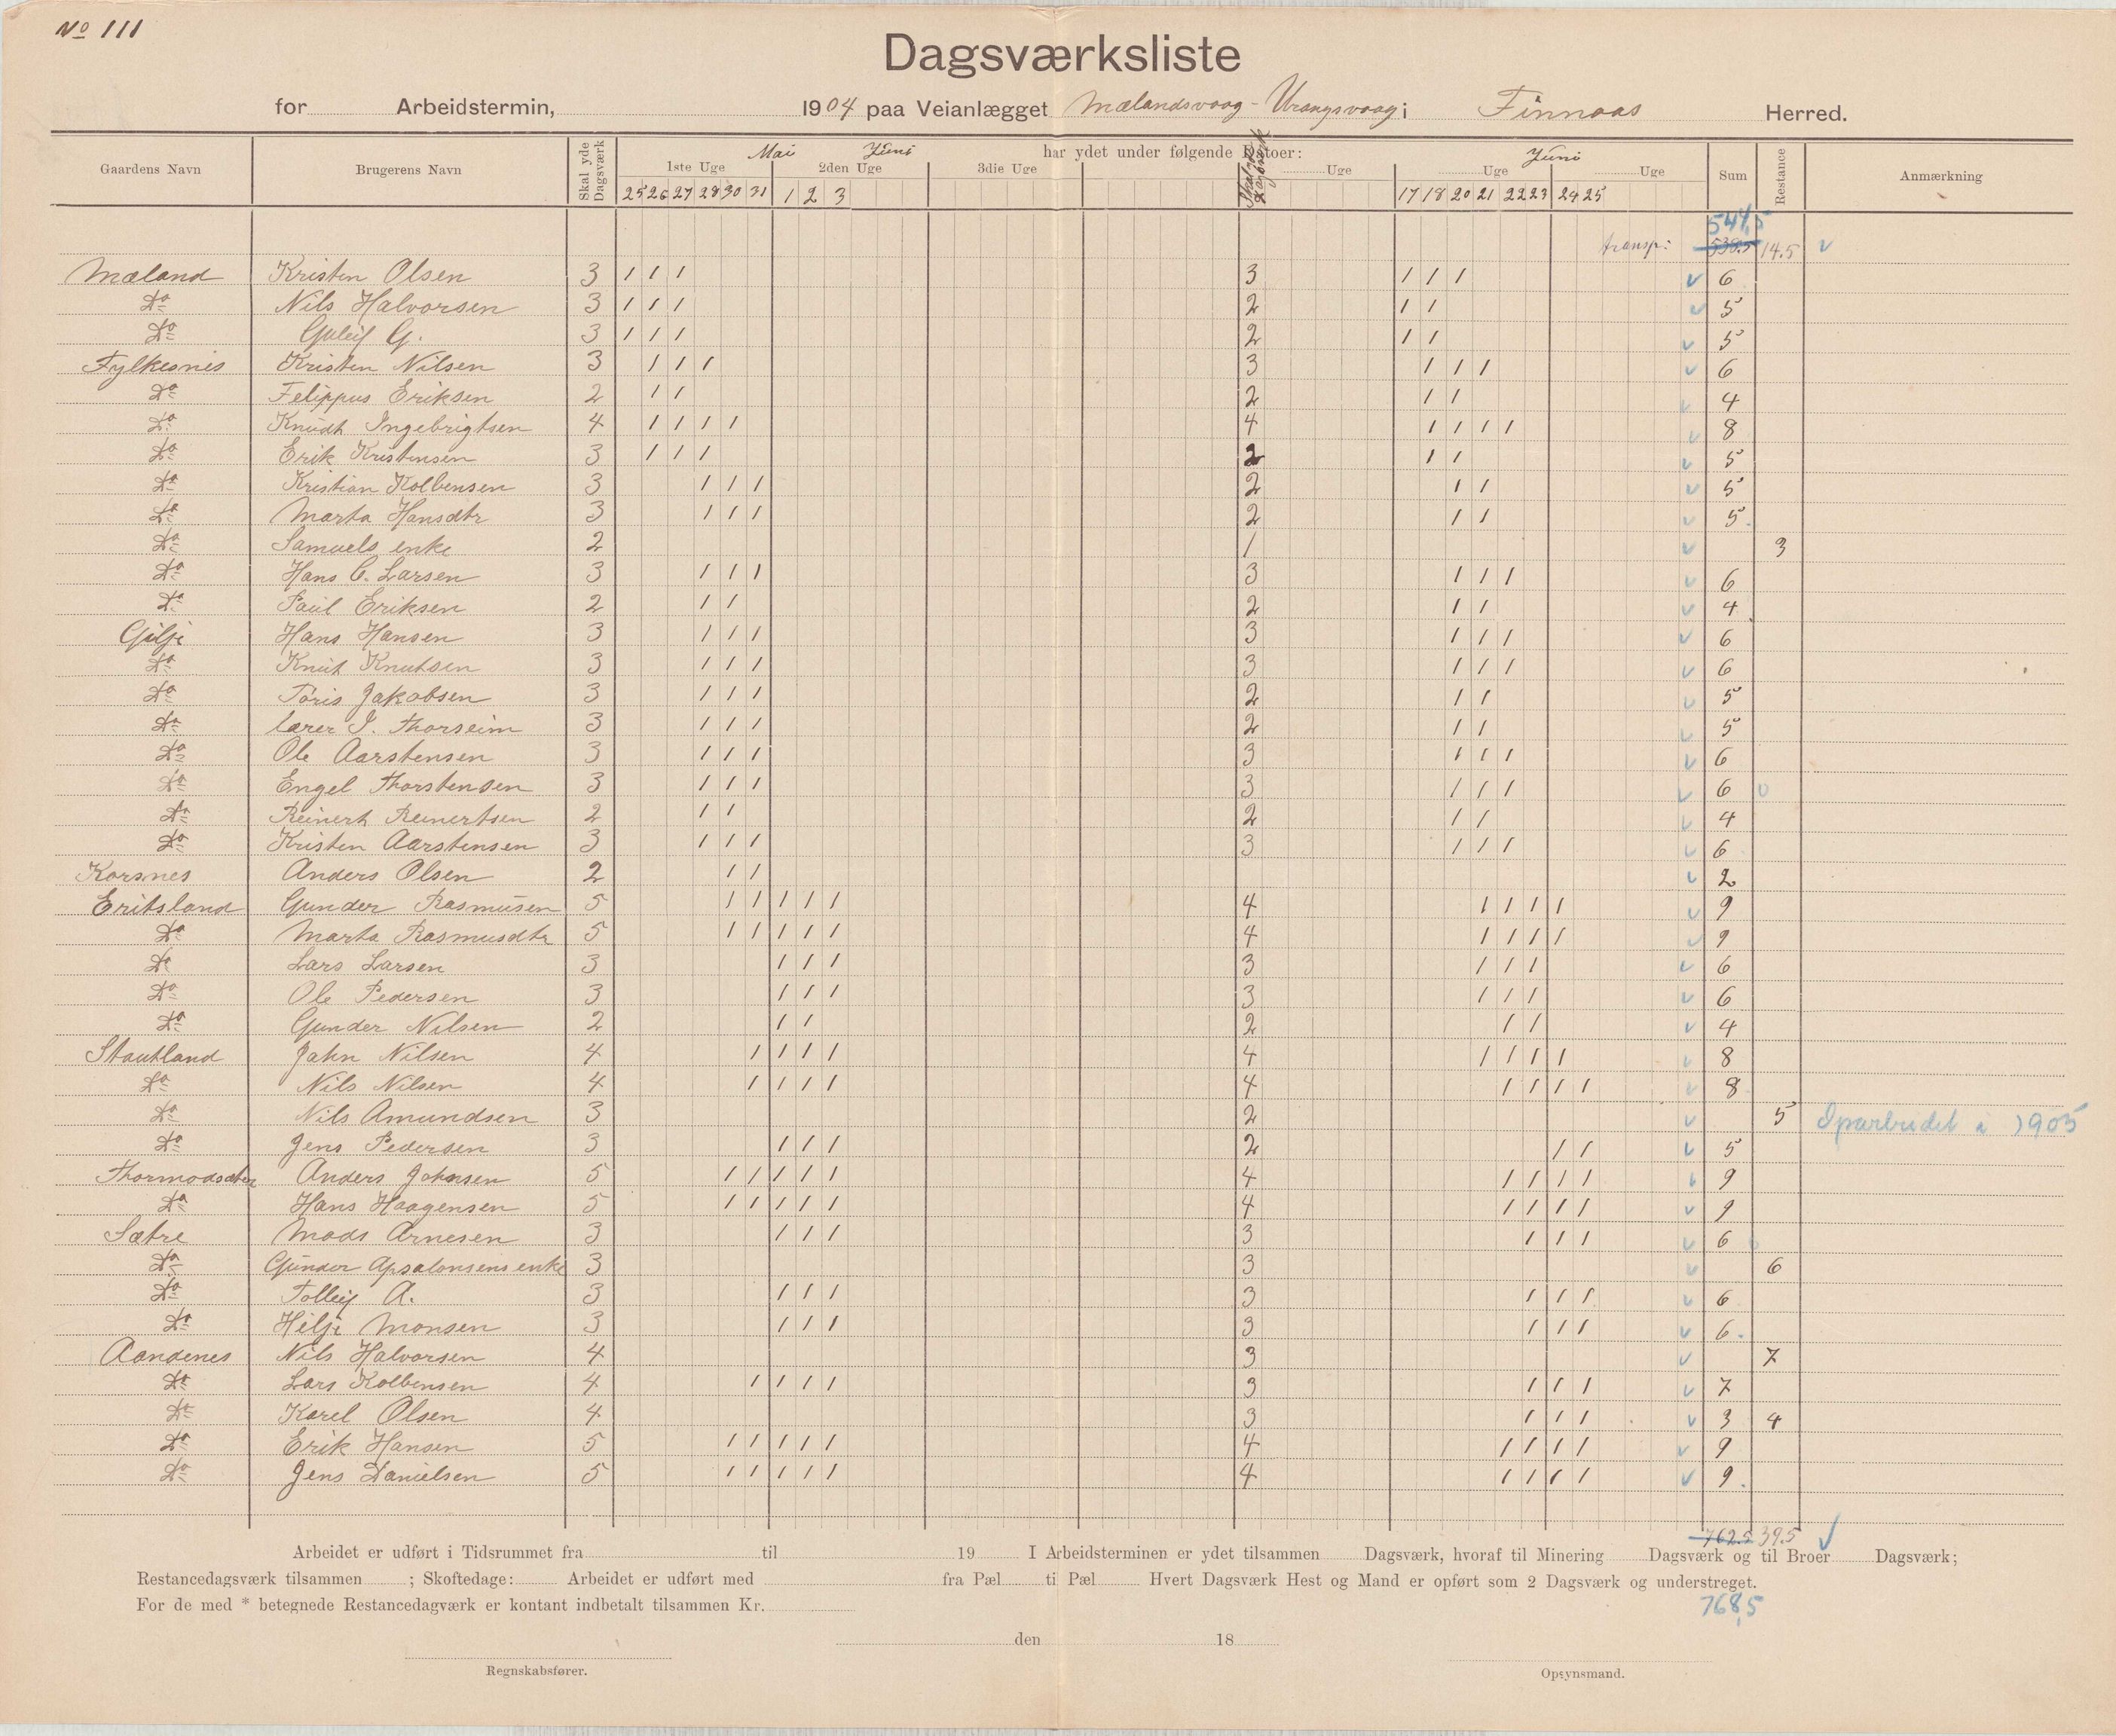 No 111
Dagsværksliste
for Arbeidstermin, 1904 paa Veianlægget Mælandsvaag - Urangsvaag i Finnaas Herred.
Gaardens Navn Brugerens Navn Skal yde Dagsværk har ydet under følgende Datoer: Sum Restance Anmærkning
Mai Juni Juni
1ste Uge 2den Uge 3die Uge Uge Uge Uge
25 26 27 28 30 31 1 2 3 17 18 20 21 22 23 24 25
544,5
transp: 538.5 14.5
Mæland Kristen Olsen 3 / / / 3 / / / 6
Do Nils Halvorsen 3 / / / 2 / / 5
Do Guleif G. 3 / / / 2 / / 5
Fylkesnis Kristen Nilsen 3 / / / 3 / / / 6
Do Felippus Eriksen 2 / / 2 / / 4
Do Knudt Ingebrigtsen 4 / / / / 4 / / / / 8
Do Erik Kristensen 3 / / / 2 / / 5
Do Kristian Kolbensen 3 / / / 2 / / 5
Do Marta Hansdtr 3 / / / 2 / / 5
Do Samuels enke 2 1 3
Do Hans C. Larsen 3 / / / 3 / / / 6
Do Paul Eriksen 2 / / 2 / / 4
Gilje Hans Hansen 3 / / / 3 / / / 6
Do Knut Knutsen 3 / / / 3 / / / 6
Do Tøris Jakobsen 3 / / / 2 / / 5
Do lærer I. Thorseim 3 / / / 2 / / 5
Do Ole Aarstensen 3 / / / 3 / / / 6
Do Engel Thorstensen 3 / / / 3 / / / 6
Do Reinert Reinertsen 2 / / 2 / / 4
Do Kristen Aarstensen 3 / / / 3 / / / 6
Korsnes Anders Olsen 2 / / 2
Eritsland Gunder Rasmusen 5 / / / / / 4 / / / / 9
Do Marta Rasmusdtr 5 / / / / / 4 / / / / 9
Do Lars Larsen 3 / / / 3 / / / 6
Do Ole Pedersen 3 / / / 3 / / / 6
Do Gunder Nilsen 2 / / 2 / / 4
Stautland Jahn Nilsen 4 / / / / 4 / / / / 8
Do Nils Nilsen 4 / / / / 4 / / / / 8
Do Nils Amundsen 3 2 5 Oparbeidet i 1905
Do Jens Pedersen 3 / / / 2 / / 5
Anders Johnsen 5 / / / / / 4 / / / / 9
Do Hans Haagensen 5 / / / / / 4 / / / / 9
Sætre Mads Arnesen 3 / / / 3 / / / 6
Do Gunder Apsalonsens enke 3 3 6
Do Tolleif A. 3 / / / 3 / / / 6
Do Hilje Monsen 3 / / / 3 / / / 6
Aandenes Nils Halvorsen 4 3 7
Do Lars Kolbensen 4 / / / / 3 / / / 7
Do Karel Olsen 4 3 / / / 3 4
Do Erik Hansen 5 / / / / / 4 / / / / 9
Do Jens Danielsen 5 / / / / / 4 / / / / 9
762.5 39.5
Arbeidet er udført i Tidsrummet fra til 19 I Arbeidsterminen er ydet tilsammen Dagsværk, hvoraf til Minering Dagsværk og til Broer Dagsværk;
Restancedagsværk tilsammen ; Skoftedage: Arbeidet er udført med fra Pæl ti Pæl Hvert Dagsværk Hest og Mand er opført som 2 Dagsværk og understreget.
768,5
For de med * betegnede Restancedagværk er kontant indbetalt tilsammen Kr.
den 18
Regnskabsfører. Opsynsmand.